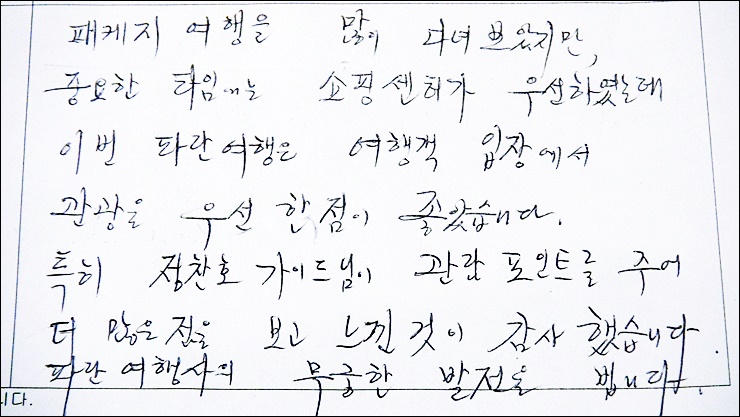 패케지 여행을 많이 다녀 보았지만,
중요한 타임에는 쇼핑센타가 우선하였는데
이번 파란여행은 여행객 입장에서
관광을 우선 한점이 좋았습니다.
특히 정찬호 가이드님이 관람 포인트를 주어
더 많은 점을 보고 느낀것이 감사 했습니다.
파란여행사의 무궁한 발전을 빕니다.
니다.